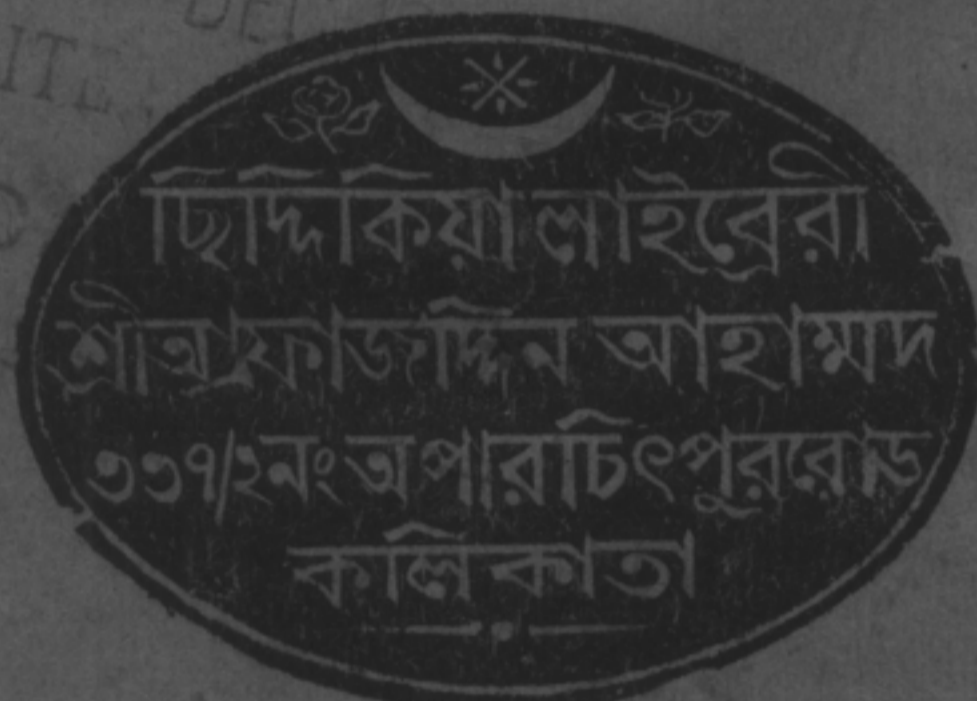 ছিদ্দিকিয়া লাইব্রেরী
শ্রীআফাজদ্দিন আহাম্মদ
৩৩৭/২নং অপারচিৎপুররোড
কলিকাতা